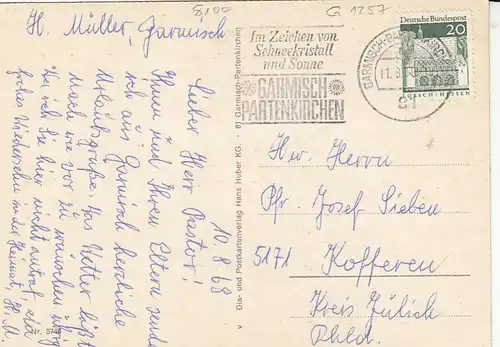 8,00
G 1257
H. Müller, Garmisch
Im Zeichen von
Schneekristall
und Sonne
GARMISCH
PARTENKIRCHEN
GARMISCH-PARTENKIRCHEN
81
Deutsche Bundespost
20
LORSCH/HESSEN
10.8.68
Lieber Herr Pastor!
Ihnen und Ihren Eltern sende
ich aus Garmisch herzliche
Urlaubsgrüße. Das Wetter läßt
nach wie vor zu wünschen übrig
daß ich Sie hier nicht antraf, ein
frohes Wiedersehn in der Heimat, H. M.
V Dia- und Postkartenverlag Hans Huber KG. · 81 Garmisch-Partenkirchen
Nr.
Hw. Herrn
Pfr. Josef Sieben
5171 Kofferen
Kreis Jülich
Rhld.